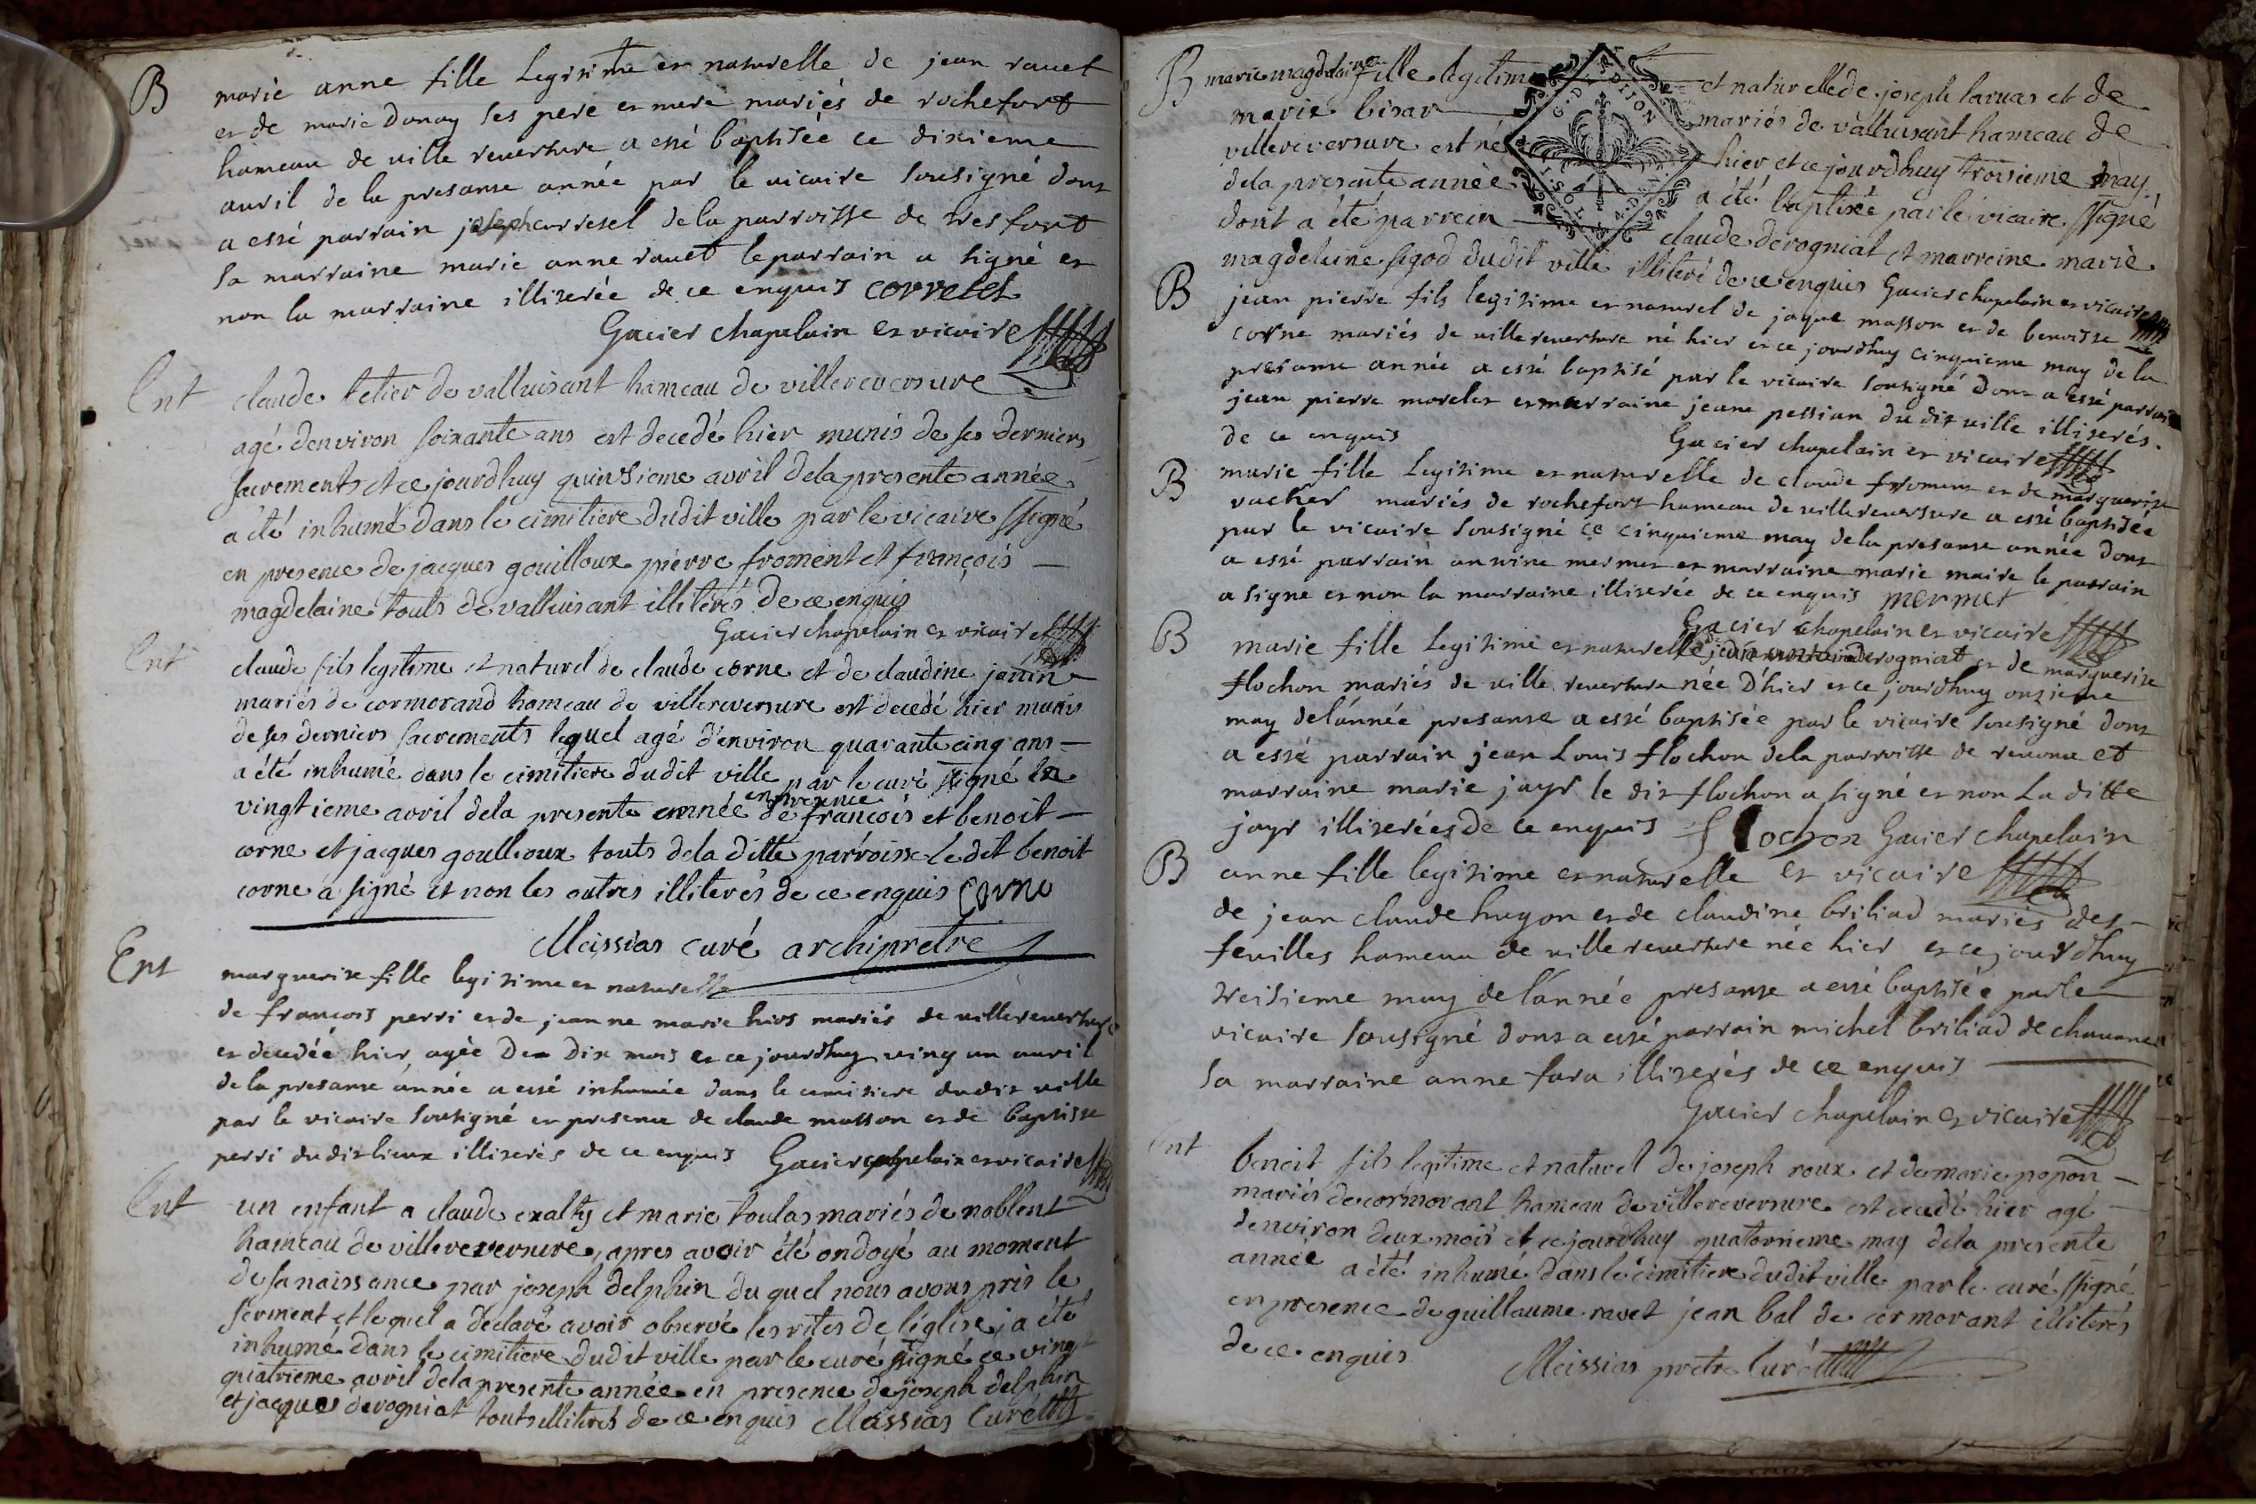 B
marie anne fille legitime et naturelle de jean rauet
et de marie Donay ses pere et mere mariés de rochefort
hameau de ville reuersure a esté baptisée ce dixieme
auril de la presante année par le uicaire sousigné dont
a esté parrain joseph corretel de la parroisse de tresfort
sa marraine marie anne rauet le parrain a signé et
non la marraine illiterée de ce enquis corretel
Gacier chapelain et vicaire
Ent
claude tetier de valluisant hameau de villereversure
agé denviron soixante ans est decedé hier munis de ses derniers
sacrements et ce jourdhuy quinsieme avril dela presente année
a été inhumé dans le cimitiere dudit ville par le vicaire ssigné
en presence de jacques gouilloux pierre froment et françois
magdelaine touts de valluisant illiterés de ce enquis
Gacier chapelain et vicaire
Ent
claude fils legitime et naturel de claude corne et de claudine janin
mariés de cormorand hameau de villereversure est decedé hier munis
de ses derniers sacrements lequel agé d'environ quarante cinq ans
a été inhumé dans le cimitiere dudit ville par le curé ssigné le
vingtieme avril dela presente année en presence de francois et benoit
corne et jacques goullioux touts dela ditte parroisse le dit benoit
corne a signé et non les autres illiterés de ce enquis Corne
Meissias curé archiprêtre
Ent
marguerite fille legitime et naturelle
de francois perri et de jeanne marie hivs mariés de uillereuersure
et decedée hier agée De Dix mois et ce jourdhuy ving un auril
de la presante année a esté inhumée dans le cimitiere dudit uille
par le vicaire sousigné en presence de claude masson et de baptiste
perri du dit lieux illiterés de ce enquis Gacier chapelain et vicaire
Ent
un enfant a claude exaltés et marie toulas mariés de noblent
hameau de villereversure, apres avoir été ondoyé au moment
de sa naissance par joseph delphin du quel nous avons pris le
serment et lequel a déclaré avoir observé les rites de l'église, a été
inhumé dans le cimitiere dudit ville par le curé ssigné ce vingt
quatrieme avril dela presente année en presence de joseph delphin
et jacques derogniat touts illiterés de ce enquis Meissias Curé
B
marie magdelaine fille legitime et naturelle de joseph laruas et de
marie birar mariés de valluisant hameau de
villereversure est né hier et ce jourdhuy troisieme may
dela presente année a été baptisée par le vicaire ssigné
dont a été parrein claude derogniat et marreine marie
magdeleine sigod dudit ville illiteré de ce enquis Gacier chapelain et vicaire
G. D. DIJON
I. SOL
B
jean pierre fils legitime et naturel de jaque masson et de benoitte
corne mariés de uille reuersure né hier et ce jourdhuy cinquieme may de la
presante année a esté baptisé par le vicaire sousigné dont a esté parrain
jean pierre morelet et marraine jeane pessian du dit uille illiterés
de ce enquis Gacier chapelain et vicaire
B
marie fille legitime et naturelle de claude froment et de marguerite
vacher mariés de rochefort hameau de uillereuersure a esté baptisée
par le vicaire sousigné ce cinquieme may de la presante année dont
a esté parrain antoine mermet et marraine marie maire le parrain
a signe et non la marraine illiterée de ce enquis mermet
Gacier chapelain et vicaire
B
marie fille legitime et naturelle derogniat et de marguerite
flochon mariés de uille reuersure née D'hier et ce jourdhuy onzieme
may de l'année presante a esté baptisée par le vicaire sousigné dont
a esté parrain jean Louis flochon de la parroisse de reuona et
marraine marie jayr le dit flochon a signé et non La ditte
jayr illiterées de ce enquis flochon Gacier chapelain
et vicaire
B
anne fille legitime et naturelle
de jean claude hugon et de claudine briliad mariés des
feuilles hameau de uille reuersure née hier et ce jourdhuy
treisieme may de l'année presante a esté baptisée par le
vicaire sousigné dont a esté parrain michel briliad de chauanes
sa marraine anne fara illiterés de ce enquis
Gacier chapelain et vicaire
Ent
benoit fils legitime et naturel de joseph roux et de marie popon
mariés de cormorant hameau de villereversure est decedé hier agé
denviron deux mois et ce jourdhuy quatornieme may dela presente
année a été inhumé dans le cimitiere dudit ville par le curé ssigné
en presence de guillaume ravet jean bal de cormorant illiterés
de ce enquis Meissias prêtre Curé